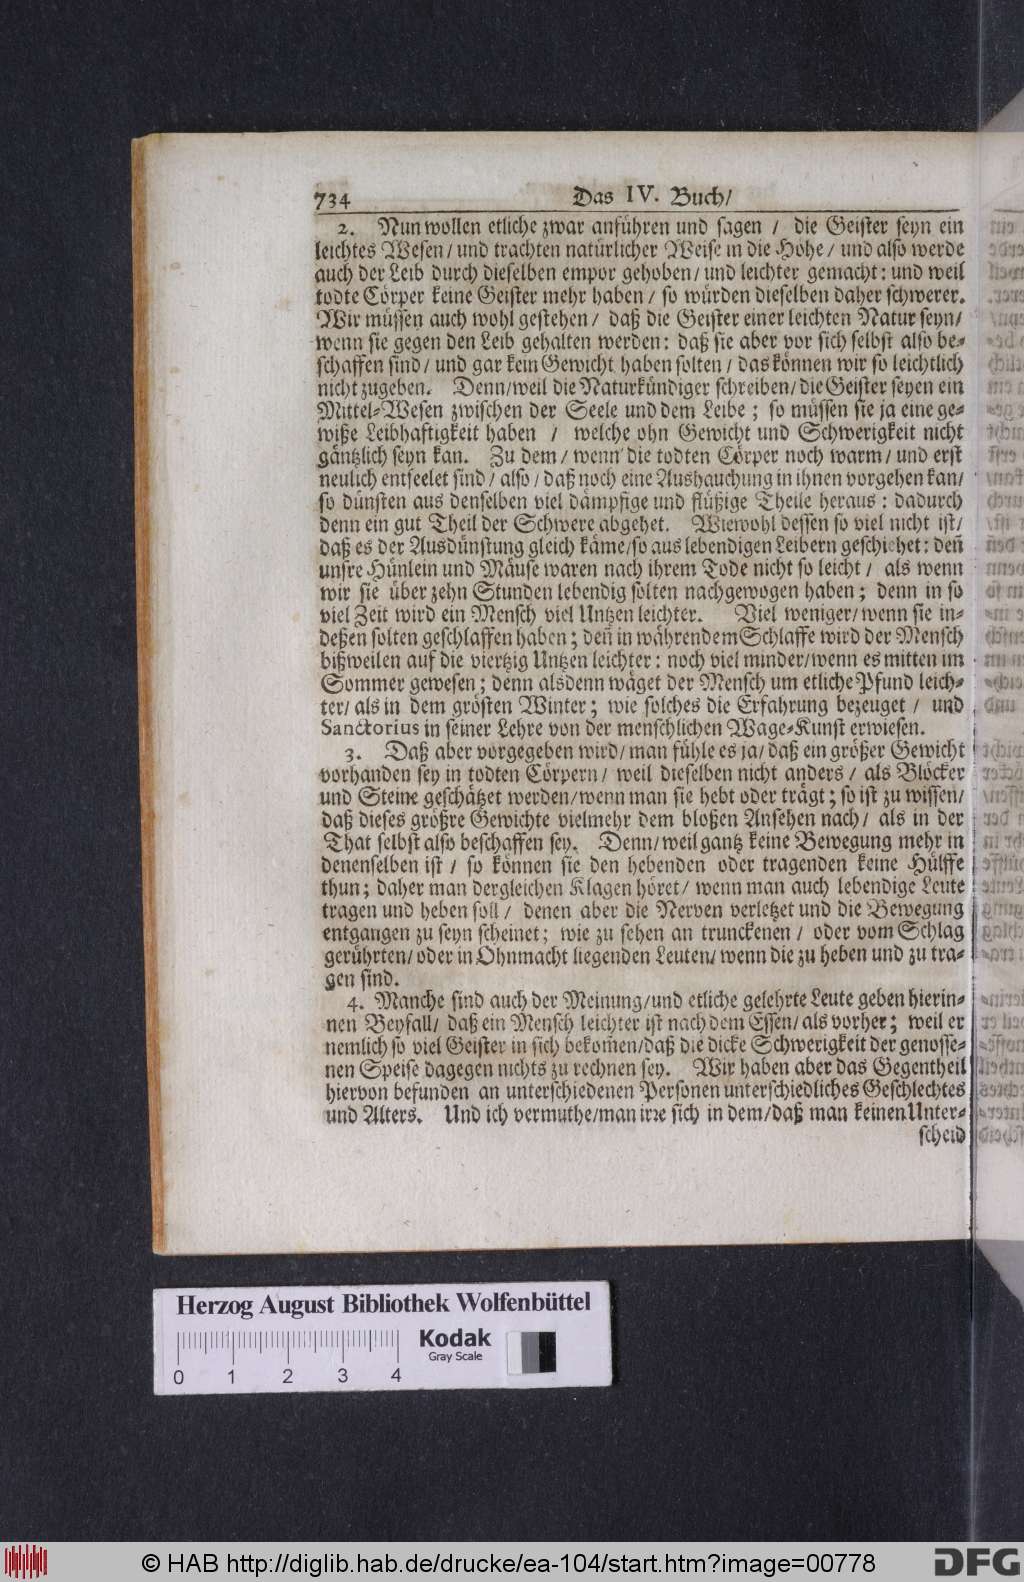 734 Das IV. Buch/
2. Nun wollen etliche zwar anführen und sagen / die Geister seyn ein
leichtes Wesen / und trachten natürlicher Weise in die Höhe / und also werde
auch der Leib durch dieselben empor gehoben / und leichter gemacht: und weil
todte Cörper keine Geister mehr haben / so würden dieselben daher schwerer.
Wir müssen auch wohl gestehen / daß die Geister einer leichten Natur seyn/
wenn sie gegen den Leib gehalten werden: daß sie aber vor sich selbst also be-
schaffen sind / und gar kein Gewicht haben solten / das können wir so leichtlich
nicht zugeben. Denn/weil die Naturkündiger schreiben/die Geister seyen ein
Mittel-Wesen zwischen der Seele und dem Leibe ; so müssen sie ja eine ge-
wiße Leibhaftigkeit haben / welche ohn Gewicht und Schwerigkeit nicht
gäntzlich seyn kan. Zu dem / wenn die todten Cörper noch warm / und erst
neulich entseelet sind / also / daß noch eine Aushauchung in ihnen vorgehen kan/
so dünsten aus denselben viel dämpfige und flüßige Theile heraus : dadurch
denn ein gut Theil der Schwere abgehet. Wiewohl dessen so viel nicht ist/
daß es der Ausdünstung gleich käme/so aus lebendigen Leibern geschiehet: deñ
unsre Hünlein und Mäuse waren nach ihrem Tode nicht so leicht / als wenn
wir sie über zehn Stunden lebendig solten nachgewogen haben ; denn in so
viel Zeit wird ein Mensch viel Untzen leichter. Viel weniger/ wenn sie in-
deßen solten geschlaffen haben ; deñ in währendem Schlaffe wird der Mensch
bißweilen auf die viertzig Untzen leichter: noch viel minder/wenn es mitten im
Sommer gewesen ; denn alsdenn wäget der Mensch um etliche Pfund leich-
ter/ als in dem grösten Winter ; wie solches die Erfahrung bezeuget / und
Sanctorius in seiner Lehre von der menschlichen Wage-Kunst erwiesen.
3. Daß aber vorgegeben wird/ man fühle es ja/ daß ein größer Gewicht
vorhanden sey in todten Cörpern / weil dieselben nicht anders / als Blöcker
und Steine geschätzet werden/wenn man sie hebt oder trägt ; so ist zu wissen/
daß dieses größre Gewichte vielmehr dem bloßen Ansehen nach / als in der
That selbst also beschaffen sey. Denn/ weil gantz keine Bewegung mehr in
denenselben ist / so können sie den hebenden oder tragenden keine Hülffe
thun ; daher man dergleichen Klagen höret / wenn man auch lebendige Leute
tragen und heben soll / denen aber die Nerven verletzet und die Bewegung
entgangen zu seyn scheinet ; wie zu sehen an trunckenen / oder vom Schlag
gerührten/ oder in Ohnmacht liegenden Leuten/ wenn die zu heben und zu tra-
gen sind.
4. Manche sind auch der Meinung/und etliche gelehrte Leute geben hierin-
nen Beyfall/ daß ein Mensch leichter ist nach dem Essen/ als vorher ; weil er
nemlich so viel Geister in sich bekom̃en/daß die dicke Schwerigkeit der genosse-
nen Speise dagegen nichts zu rechnen sey. Wir haben aber das Gegentheil
hiervon befunden an unterschiedenen Personen unterschiedliches Geschlechtes
und Alters. Und ich vermuthe/man irre sich in dem/daß man keinen Unter-
scheid
Herzog August Bibliothek Wolfenbüttel
Kodak
Gray Scale
0 1 2 3 4
© HAB http://diglib.hab.de/drucke/ea-104/start.htm?image=00778
DFG